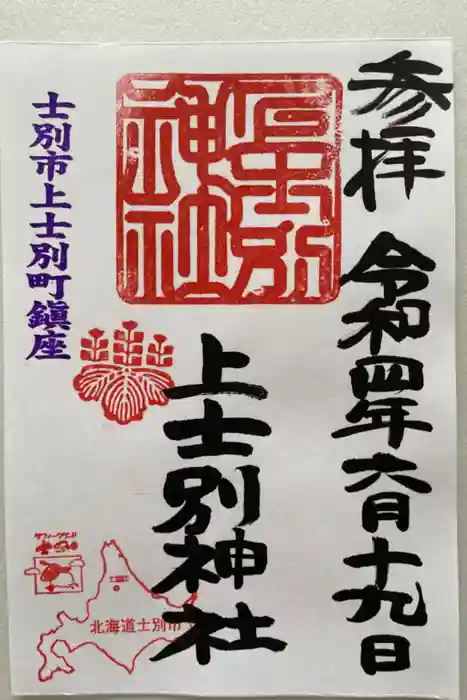 参拝 令和四年六月十九日
上士別神社
上士別
神社
士別市上士別町鎮座
北海道士別市